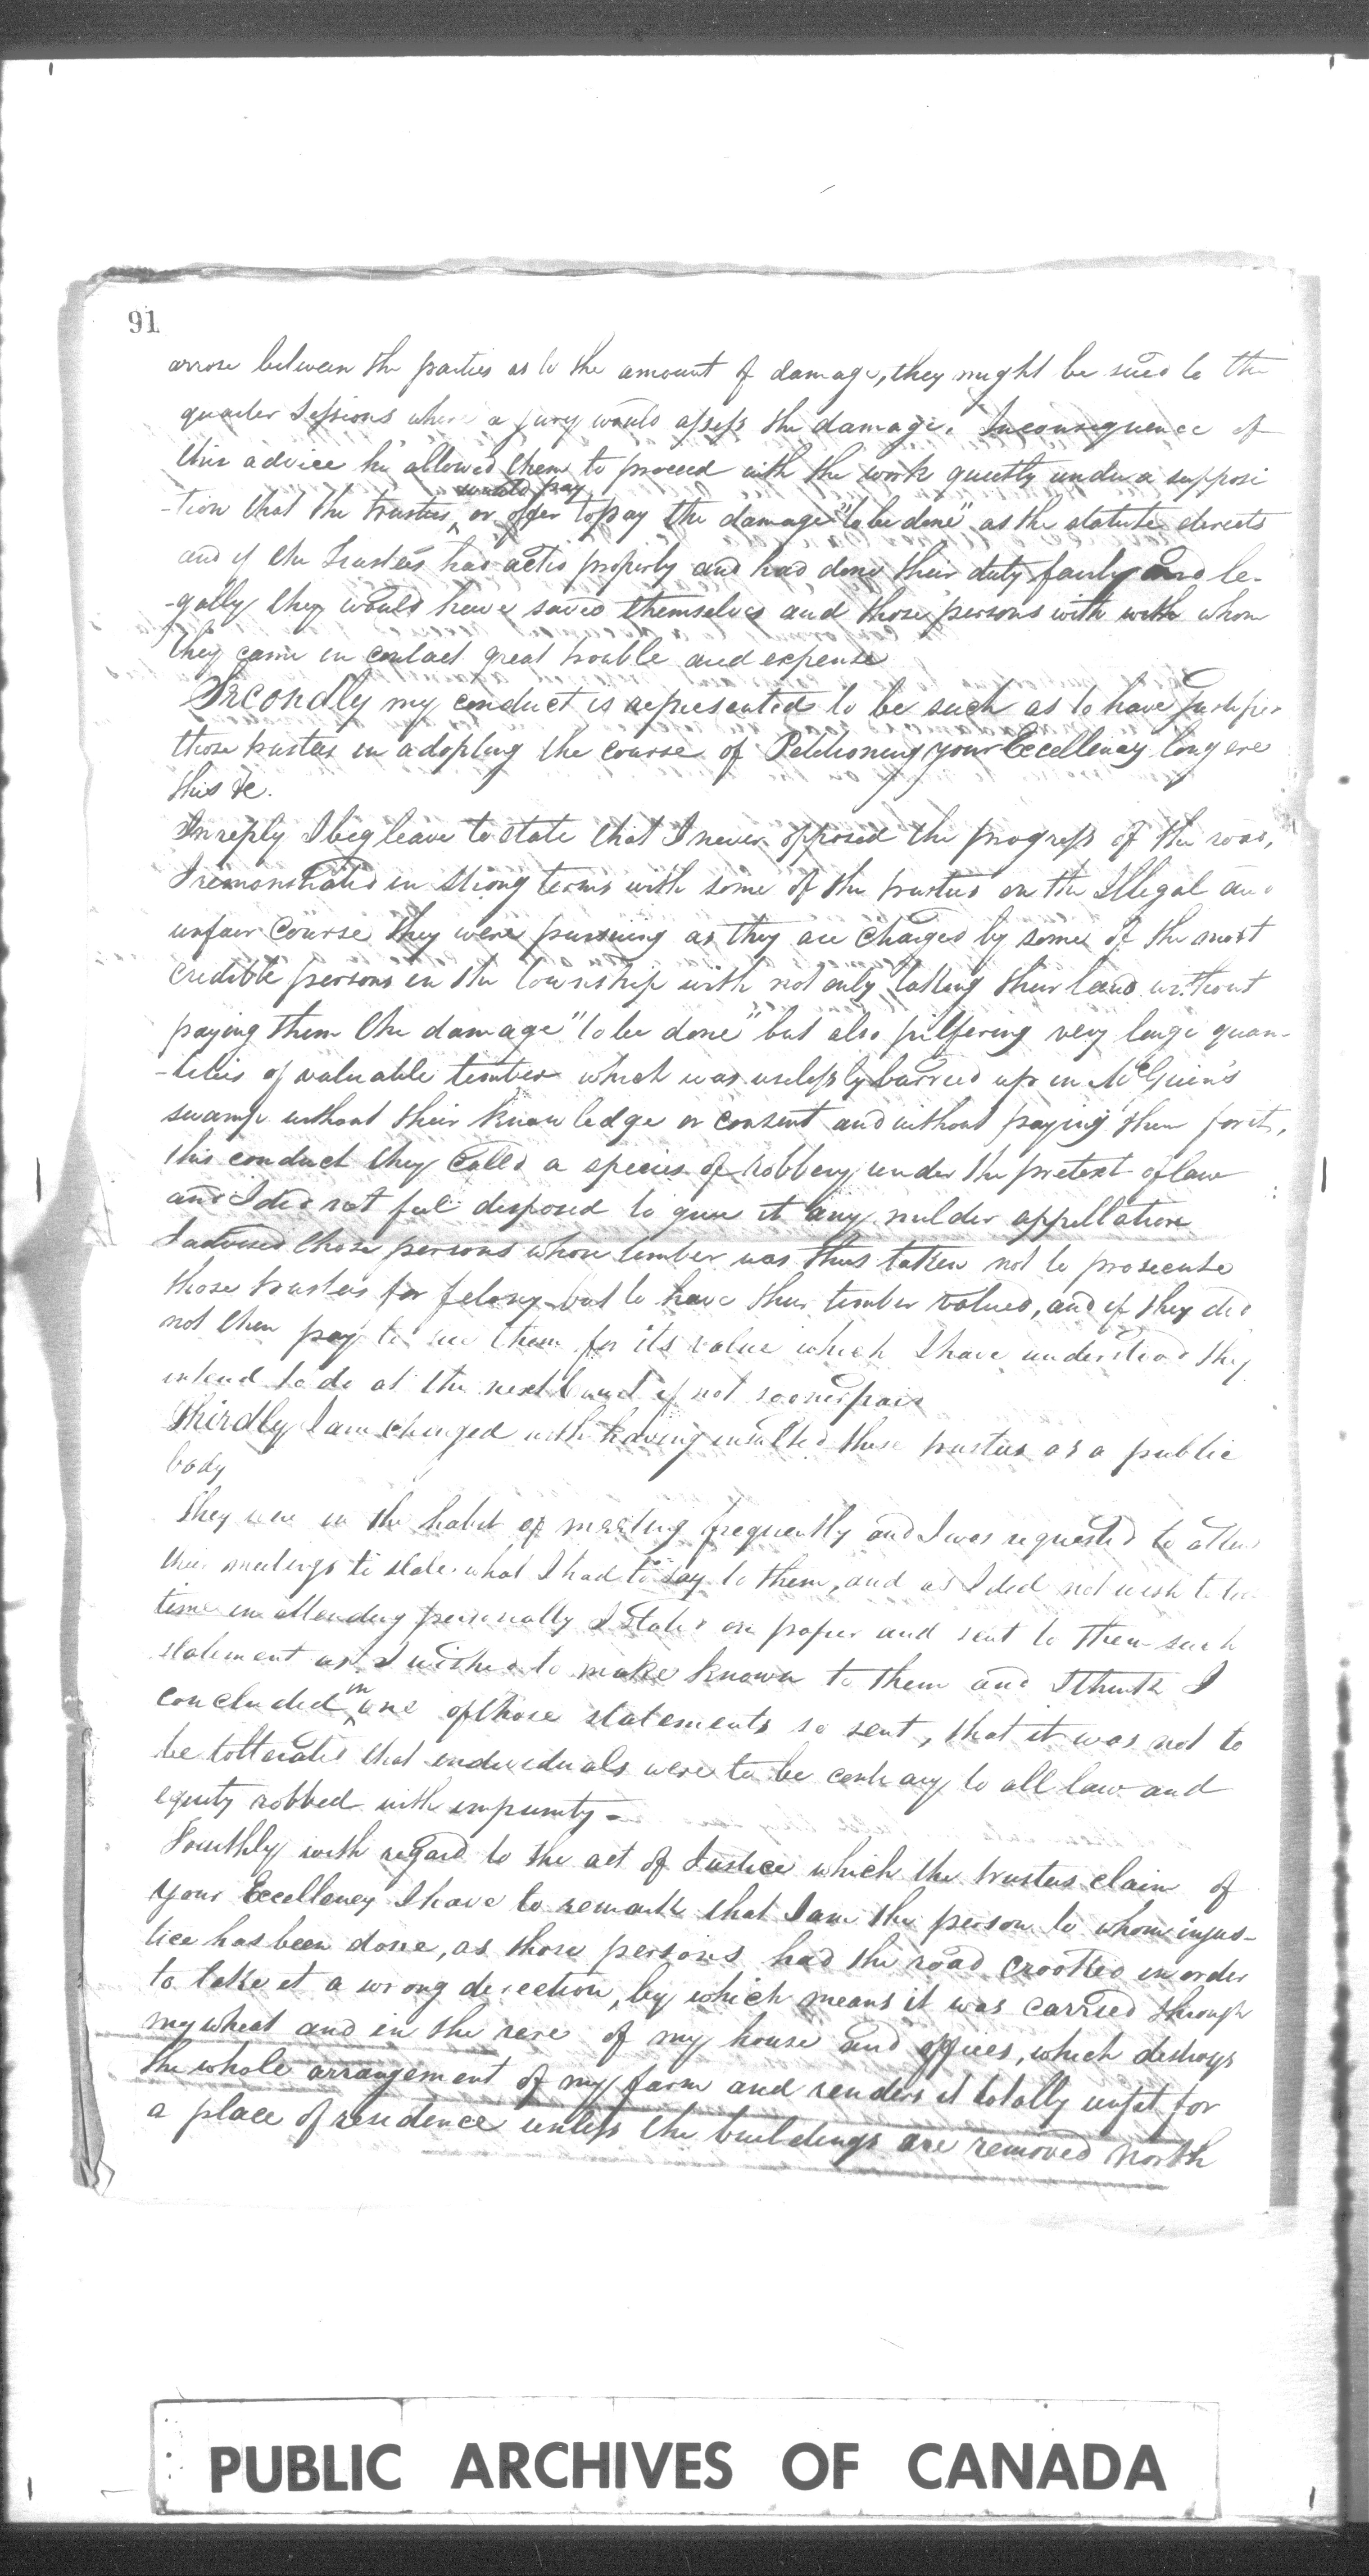 91
arrose between the parties as to the amount of damage, they might be sued to the
quarter Sessions where a jury would assess the damage. Inconsequence of
this advice he allowed them to proceed with the work quietly under a supposi
-tion that the trustees would pay or offer to pay the damage "to be done" as the statute directs
and if the Trustees had acted properly and had done their duty fairly and le-
-gally they would have saved themselves and those persons with with whom
they came in contact great trouble and expense
Secondly my conduct is represented to be such as to have justified
those trustees in adopting the course of Petitioning your Excellency long ere
this &c.
In reply I beg leave to state that I never opposed the progress of the road,
I remonstrated in strong terms with some of the trustees on the Illegal and
unfair course they were pursuing as they are charged by some of the most
credible persons in the township with not only taking their land without
paying them the damage "to be done" but also pilfering very large quan-
-tities of valuable timber which was uselessly burried up in McGuin's
swamp without their knowledge or consent and without paying them for it,
this conduct they called a species of robbery under the pretext of law
and I did not feel disposed to give it any milder appellation
I advised those persons whose timber was thus taken not to prosecute
those trustees for felony but to have their timber valued, and if they did
not then pay to sue them for its value which I have understood they
intend to do at the next Court if not sooner paid
Thirdly I am charged with having insulted these trustees as a public
body
They were in the habit of meeting frequently and I was requested to attend
their meetings to state what I had to say to them, and as I did not wish to lose
time in attending personally I stated on paper and sent to them such
statement as I wished to make known to them and I think I
concluded in one of those statements so sent, that it was not to
be tollerated that individuals were to be contrary to all law and
equity robbed with impunity -
Fourthly with regard to the act of Justice which the trustees claim of
your Excellency I have to remark that I am the person to whom injus-
tice has been done, as those persons had the road crooked in order
to take it a wrong direction, by which means it was carried through
my wheat and in the rere of my house and offices, which destroys
the whole arrangement of my farm and renders it totally unfit for
a place of residence unless the buildings are removed North
PUBLIC ARCHIVES OF CANADA